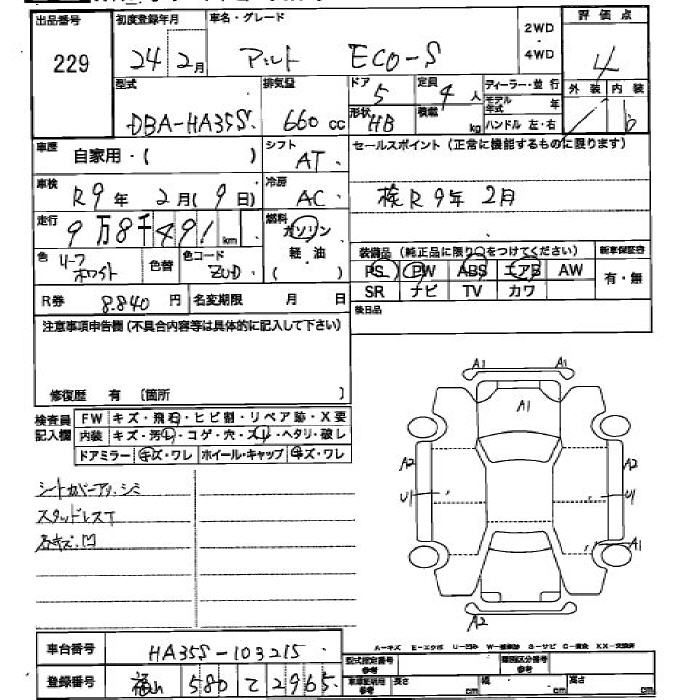 出品番号 初度登録年月 車名・グレード 2WD・4WD 評価点
229 24年2月 アルト ECO-S 4
型式 排気量 ドア 5 定員 4人 ディーラー・並行 外装 内装
DBA-HA35S 660cc 形状 HB 積載 kg モデル年式 年 ハンドル 左・右 b
車歴 自家用・( ) シフト AT セールスポイント(正常に機能するものに限ります)
車検 R9年 2月(9日) 冷房 AC 検R9年2月
走行 9万8千491km 燃料 ガソリン
色 ホワイト 色替 色コード ZUD 軽油 ( ) 装備品(純正品に限り○をつけてください) 新車保証書
PS PW ABS エアB AW 有・無
SR ナビ TV カワ
R券 8,840円 名変期限 月 日 検日品
注意事項申告欄(不具合内容等は具体的に記入して下さい)
修復歴 有 〔箇所 〕
検査員記入欄 FW キズ・飛石・ヒビ割・リペア跡・X要
内装 キズ・汚れ・コゲ・穴・スレ・ヘタリ・破レ
ドアミラー キズ・ワレ ホイール・キャップ キズ・ワレ
シートカバーアリ・シミ
スタッドレスT
石キズ・凹
A1 A1
A1
A2 A2
U1 U1
A1
A2
A-キズ E-エクボ U-凹み W-補修跡 S-サビ C-腐食 XX-交換済
車台番号 HA35S-103215 型式指定番号 参考 類別区分番号 参考
登録番号 福山 580 て 2965 長さ cm 幅 cm 高さ cm